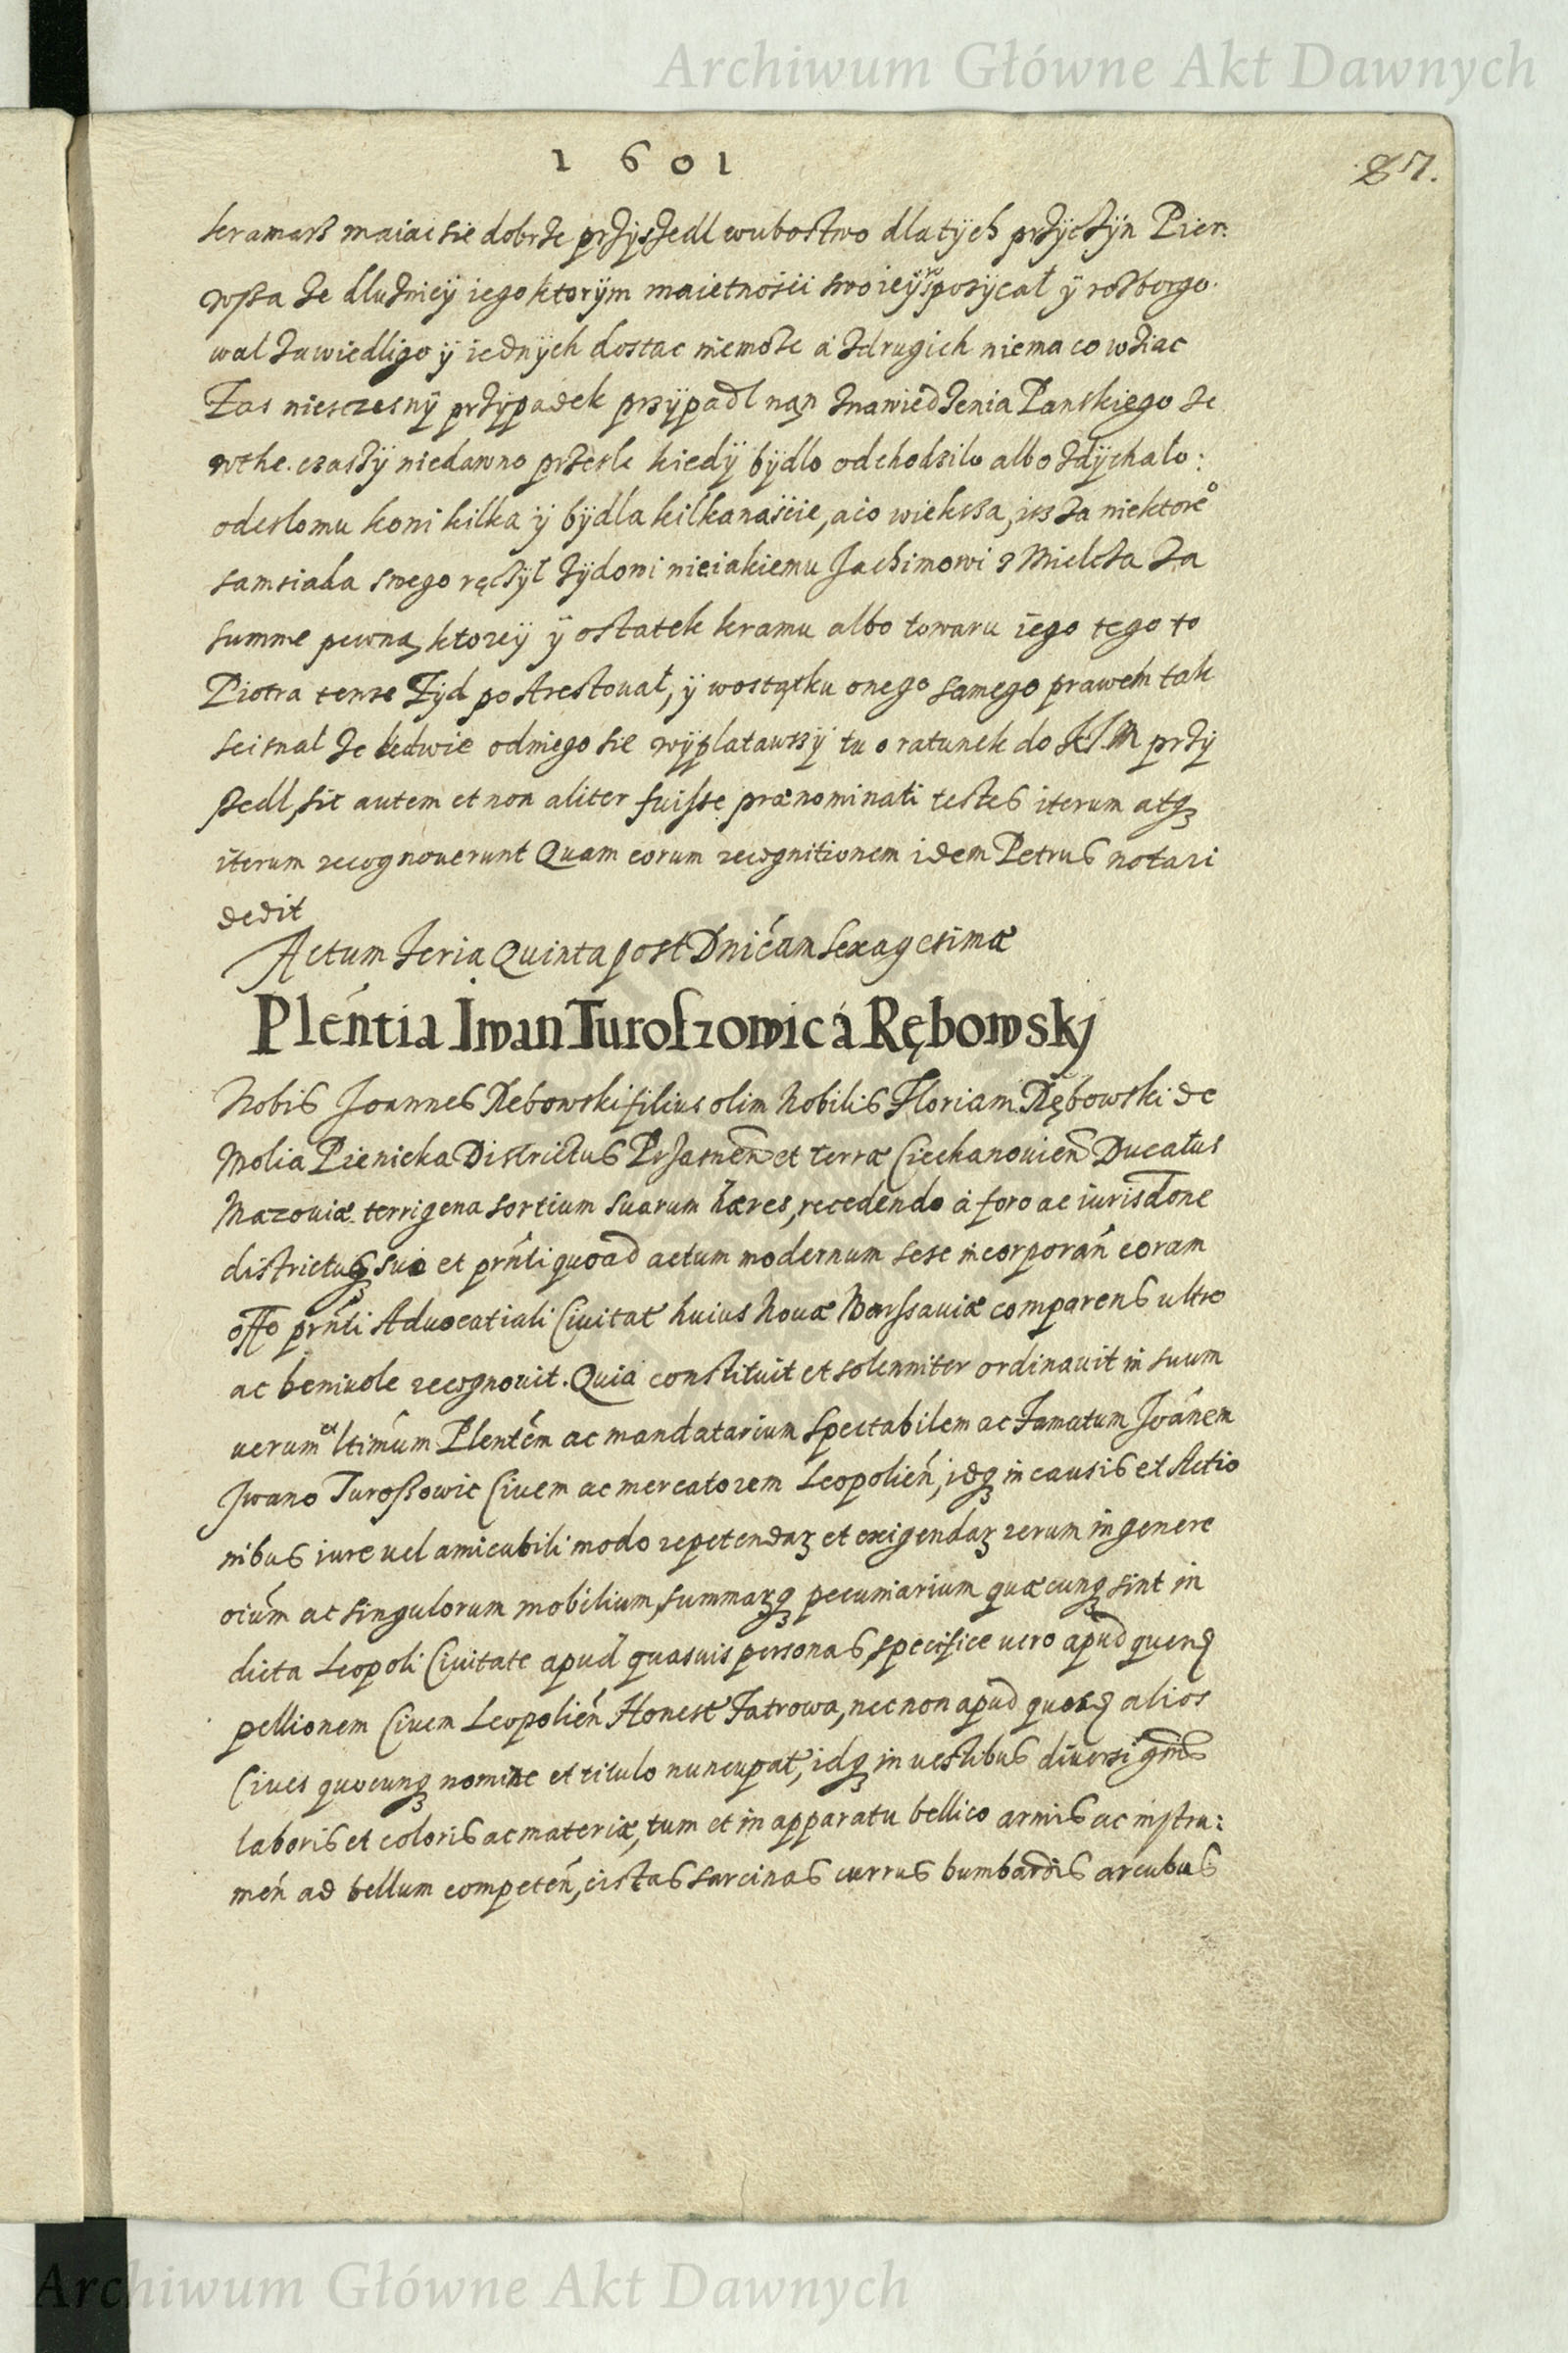 Archiwum Główne Akt Dawnych
1601
87.
kramarß maiac sie dobrze przyszedl wubostwo dlatÿch przÿczÿn Pier:
wßa ze dluznicÿ iego ktorÿm maietnosci swoieÿ pozÿcał ÿ rozborgo:
wal zawiedli go ÿ iednÿch dostac niemoze a zdrugich niema co wziac
Zas niesczesnÿ przÿpadek przÿpadl nan znawiedzenia Panskiego ze
wthe czassÿ niedawno przeszle kiedÿ bÿdlo odchodzilo albo zdÿchało:
odeszlomu koni kilka ÿ bÿdla kilkanascie, a co wieksza, isz za niektore͒
samsiada swego ręczÿł Zÿdowi nieiakiemu Jachimowi z Mielcza za
summe pewna ktoreÿ ÿ ostatek kramu albo towaru iego tego to
Piotra tense Zÿd poArestował, ÿ wostatku onego samego prawem tak
scisnal ze ledwie odniego sie wÿplatawszÿ tu o ratunek do KJM przÿ
ßedl, sic autem et non aliter fuisse prænominati testes iterum atq̃
iterum recognouerunt Quam eorum recognitionem idem Petrus notari
dedit
Actum Feria Quinta post Dnićam Sexagesimæ
Pleńtia Iwan Turoszowic á Rębowskj
Nobis Joannes Rębowski filius olim Nobilis Floriani Rębowski de
Wolia Pienicka Districtus Przasneñ et terræ Ciechanouień Ducatus
Mazouiæ terrigena sortium suarum hæres, recedendo a foro ac iurisdone
districtusq̃ sui et prńti quoad actum modernum sese incorporań coram
offo prńti Aduocatiali Ciuitat̃ huius Nouæ Warssauiæ comparens ultro
ac beniuole recognouit. Quia constituit et solenniter ordinauit in suum
uerum et ltimum Plentem ac mandatarium Spectabilem ac Famatum Joánem
Iwano Turoßowic Ciuem ac mercatorem Leopolień, idq̃ in causis et Actio
nibus iure uel amicabili modo repetendaꝝ et exigendaꝝ rerum in genere
oiúm ac singulorum mobilium, summaꝝq̃ pecuniarium quæcunq̃ sint in
dicta Leopoli Ciuitate apud quasuis personas, specifice uero apud quend̃
pellionem Ciuem Leopolień Honest̃ Jatrowa, necnon apud quosd̃ alios
Ciues quocunq̃ nomine et titulo nuncupat̃, idq̃ in uestibus diuersi gnis
laboris et coloris ac materiæ, tum et in apparatu bellico armis ac instru:
meń ad bellum competeń, cistas sarcinas currus bumbardis arcubus
Archiwum Główne Akt Dawnych